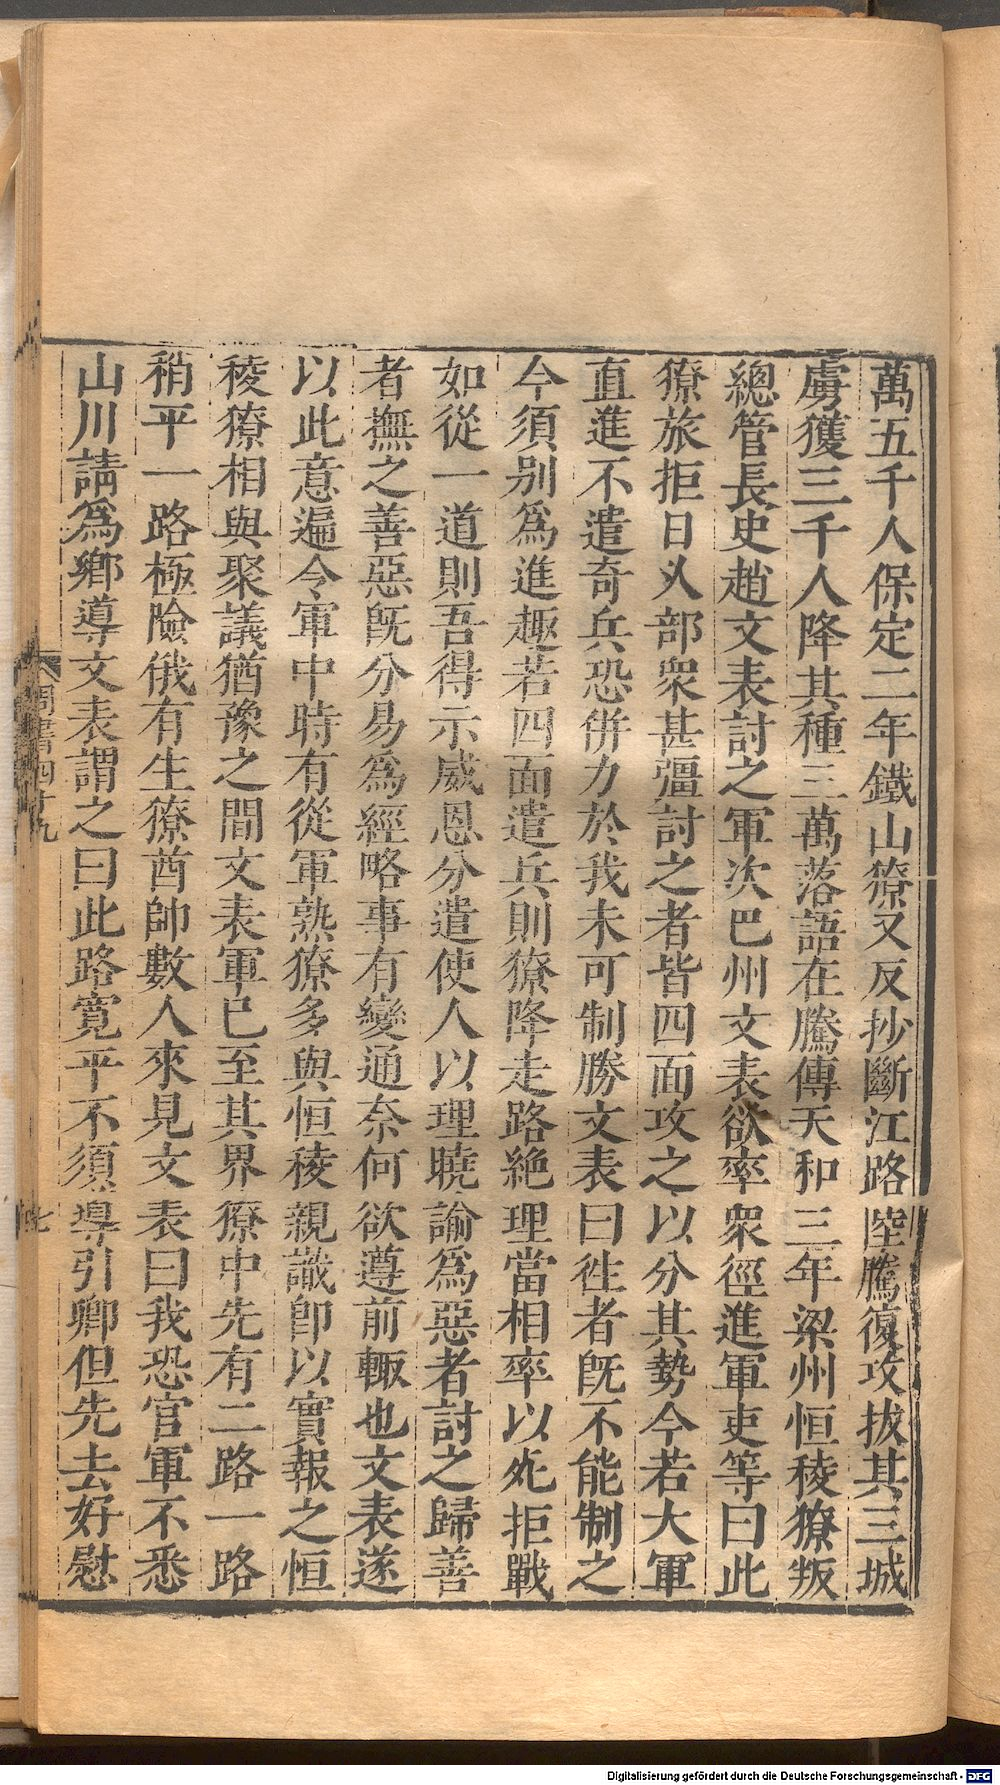 萬五千人保定二年鐵山獠又反抄斷江路陸騰復攻拔其三城
虜獲三千人降其種三萬落語在騰傳天和三年梁州恒稜獠叛
總管長史趙文表討之軍次巴州文表欲率衆徑進軍吏等曰此
獠旅拒日乆部衆甚彊討之者皆四面攻之以分其勢今若大軍
直進不遣奇兵恐併力於我未可制勝文表曰徃者旣不能制之
今須别爲進趣若四面遣兵則獠降走路絶理當相率以死拒戰
如從一道則吾得示威恩分遣使人以理曉諭爲惡者討之歸善
者撫之善惡旣分易爲經略事有變通奈何欲遵前轍也文表遂
以此意遍令軍中時有從軍熟獠多與恒稜親識卽以實報之恒
稜獠相與聚議猶豫之間文表軍已至其界獠中先有二路一路
稍平一路極險俄有生獠酋帥數人來見文表曰我恐官軍不悉
山川請爲鄉導文表謂之曰此路寬平不須導引卿但先去好慰
周書四十九
七
Digitalisierung gefördert durch die Deutsche Forschungsgemeinschaft - DFG